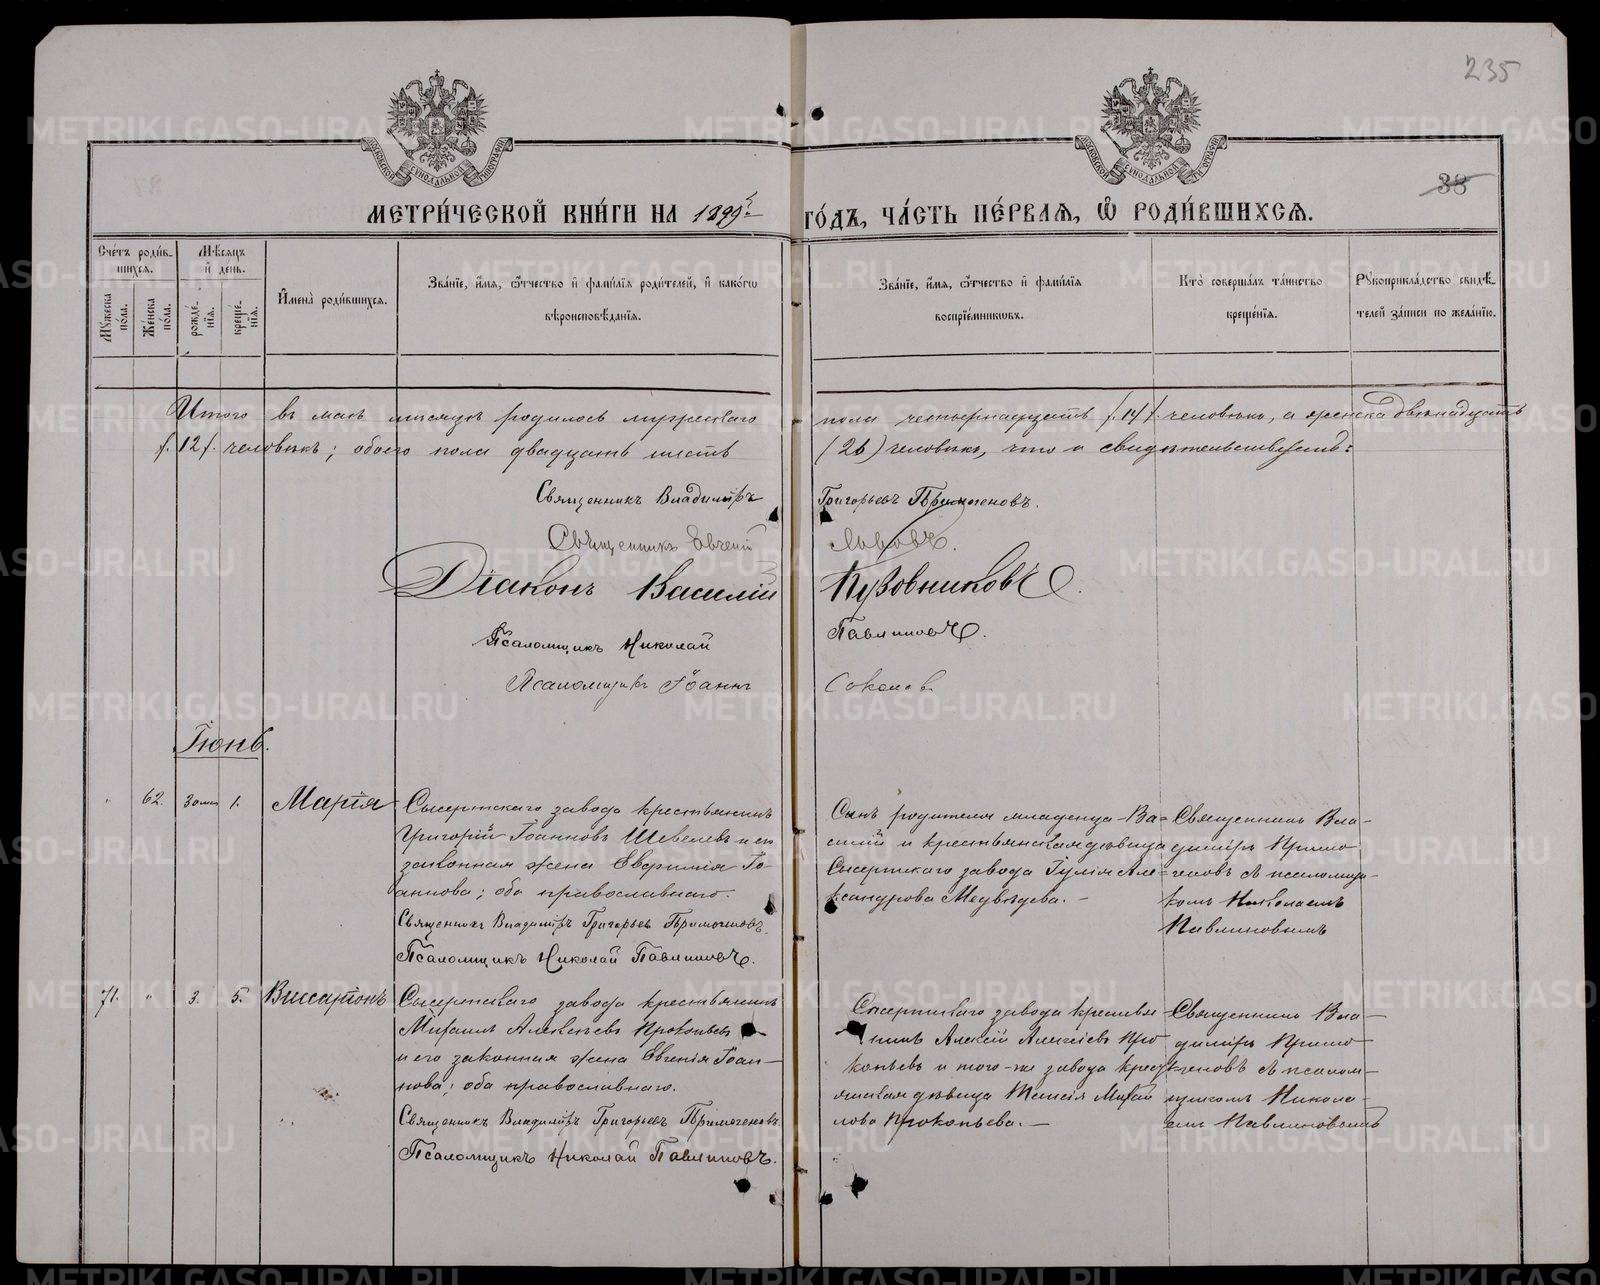 235
38
МЕТРИ́ЧЕСКОЙ КНИ́ГИ НА 1895 ГО́ДЪ, ЧА́СТЬ ПЕ́РВАѦ, Ѽ РОДИ́ВШИХСѦ.
Сче́тъ роди́в-
шихся.
Мѣ́сяцъ
и҆ де́нь.
Му́жеска по́ла.
Же́нска по́ла.
рожде́-
нія.
креще́-
нія.
И҆мена̀ роди́вшихся.
Зва́ніе, и҆́мя, ѻ҆́тчество и҆ фами́лія роди́телей, и҆ како́гѡ
вѣроисповѣ́данія.
Зва́ніе, и҆́мя, ѻ҆́тчество и҆ фами́лія
воспріе́мниковъ.
Кто̀ соверша́лъ та́инство
креще́нія.
Рукоприкла́дство свидѣ́-
телей за́писи по жела́нію.
Итого въ маѣ мѣсяцѣ родилось мужескаго пола четырнадцать /14/ человѣкъ, а женска двѣнадцать
/12/ человѣкъ; обоего пола двадцать шесть (26) человѣкъ, что и свидѣтельствуемъ:
Священникъ Владиміръ Григорьевъ Примогеновъ.
Священникъ Евгеній
Діаконъ Василій Кузовниковъ.
Псаломщикъ Николай Павлиновъ.
Псаломщикъ Іоаннъ Соколов.
Іюнь.
" 62. 30 мая 1. Марія
Сысертскаго завода крестьянинъ
Григорій Іоанновъ Шевелевъ и его
законная жена Евфимія Іо-
аннова; оба православнаго.
Священникъ Владиміръ Григорьев Примогеновъ.
Псаломщикъ Николай Павлиновъ.
Сынъ родителя младенца Ва-
силій и крестьянская дѣвица
Сысертскаго завода Іулія Але-
ксандрова Медвѣдева. -
Священникъ Вла-
диміръ Примо-
геновъ съ псаломщи-
комъ Николаемъ
Павлиновымъ
71. " 3. 5. Виссаріонъ
Сысертскаго завода крестьянинъ
Михаилъ Алексѣевъ Прокопьев
и его законная жена Евгенія Іоан-
нова; оба православнаго.
Священникъ Владиміръ Григорьевъ Примогеновъ.
Псаломщикъ Николай Павлиновъ.
Сысертскаго завода крестья-
нинъ Алексій Алексіевъ Про-
копьевъ и того-же завода крест-
янская дѣвица Таисія Михаи-
лова Прокопьева. -
Священникъ Вла-
диміръ Примо-
геновъ съ псалом-
щикомъ Никола-
емъ Павлиновымъ
METRIKI.GASO-URAL.RU